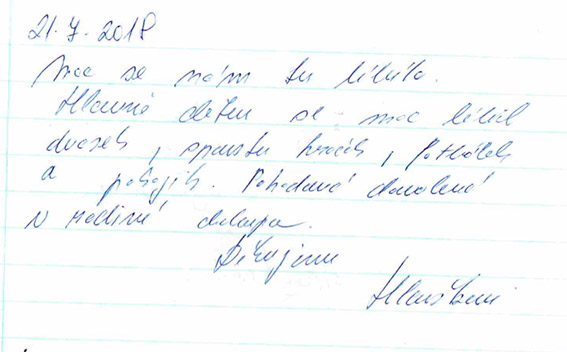 21.7.2018
Moc se nám tu líbilo.
Hlavně dětem se moc líbil
dvorek, spousta hraček,
a pokojík. Pohodová dovolená
v rodinné
Děkujeme